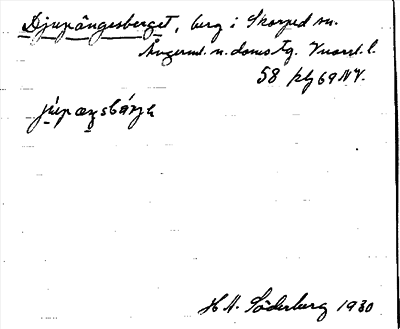 Djupängesberget, berg i Skorped sn.
Ångerml. n. doms tg. Vnorrl. l.
58 kbl 69 NV.
jʉ́pæŋsbǽrjɛ
H A. Söderberg 1930